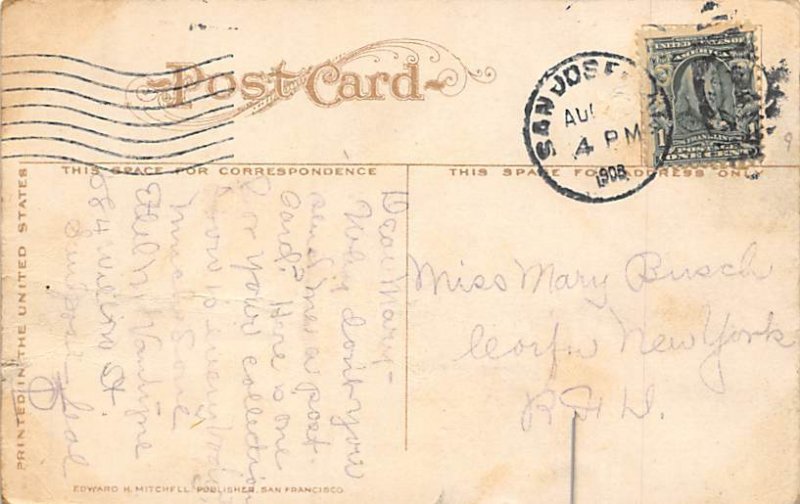 Post Card
SAN JOSE
AUG
4 PM
1908
UNITED STATES OF
ONE CENT
THIS SPACE FOR CORRESPONDENCE
THIS SPACE FOR ADDRESS ONLY
PRINTED IN THE UNITED STATES
Dear Mary-
Why dont you
send me a post
card? Here is one
for your collection
How is everybody
much love
Ethel
584 St.
Miss Mary Busch
Corfu New York
R.F.D.
EDWARD H. MITCHELL, PUBLISHER, SAN FRANCISCO
9